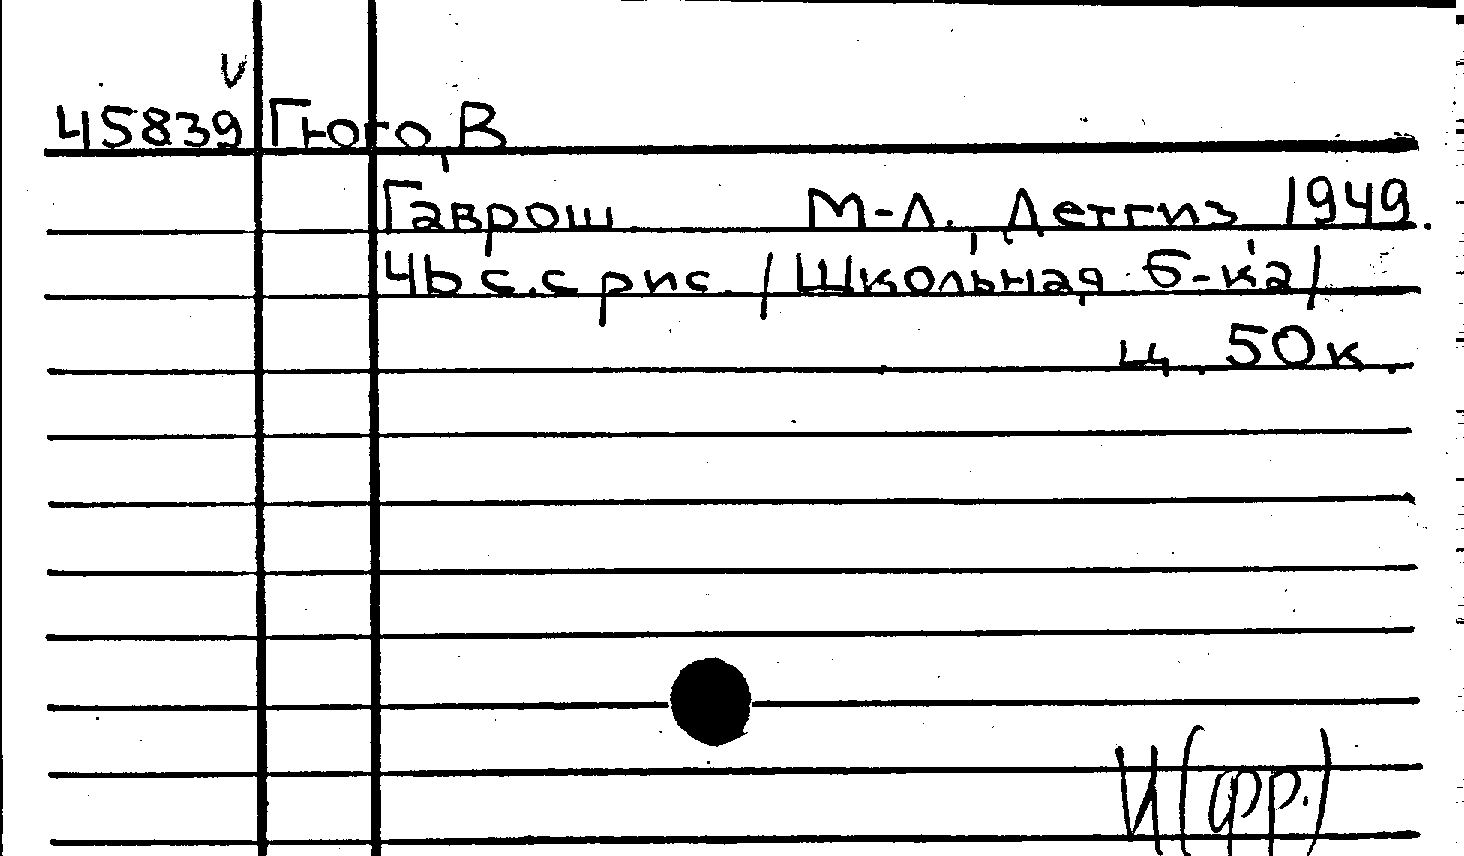 V
45839 Гюго, В
Гаврош М-Л., Детгиз, 1949.
46 с. с рис. /Школьная б-ка/
ц. 50 к.
И(фр.)